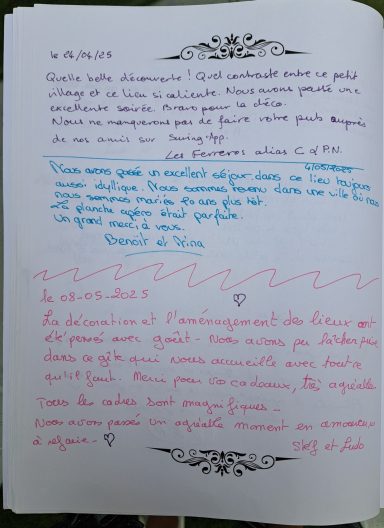 le 24/04/25
Quelle belle découverte ! Quel contraste entre ce petit
village et ce lieu si caliente. Nous avons passé une
excellente soirée. Bravo pour la déco.
Nous ne manquerons pas de faire votre pub auprès
de nos amis sur Swing-App.
Les Ferreros alias C & P.N.
4/05/2025
Nous avons passé un excellent séjour dans ce lieu toujours
aussi idyllique. Nous sommes revenu dans une ville où nous
nous sommes mariés 20 ans plus tôt.
La planche apéro était parfaite.
Un grand merci à vous.
Benoit et Irina
le 08-05-2025
La décoration et l'aménagement des lieux ont
été pensés avec goût - Nous avons pu lâcher prise
dans ce gîte qui nous accueille avec tout ce
qu'il faut. Merci pour vos cadeaux, très agréable.
Tous les cadres sont magnifiques -
Nous avons passés un agréable moment en amoureux
à refaire -
Stef et Ludo